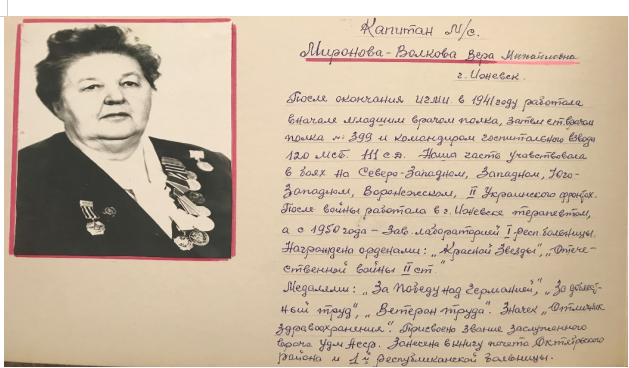 Капитан М/с.
Миронова-Волкова Вера Михайловна
г. Ижевск.
После окончания ИГМИ в 1941 году работала
вначале младшим врачом полка, затем ст. врачом
полка № 399 и командиром госпитального взвода
120 мсб. 111 с.д. Наша часть учавствовала
в боях на Северо-Западном, Западном, Юго-
Западном, Воронежском, II Украинского фронтах.
После войны работала в г. Ижевске терапевтом,
а с 1950 года – Зав. лабораторией I респ. больницы.
Награждена орденами: „Красной Звезды", „Отече-
ственной войны II ст."
Медалями: „За Победу над Германией", „За доблест-
ный труд", „Ветеран труда". Значек „Отличник
здравоохранения". Присвоено звание заслуженного
врача Удм АССР. Занесена в книгу почета Октябрьского
района и 1й республиканской больницы.